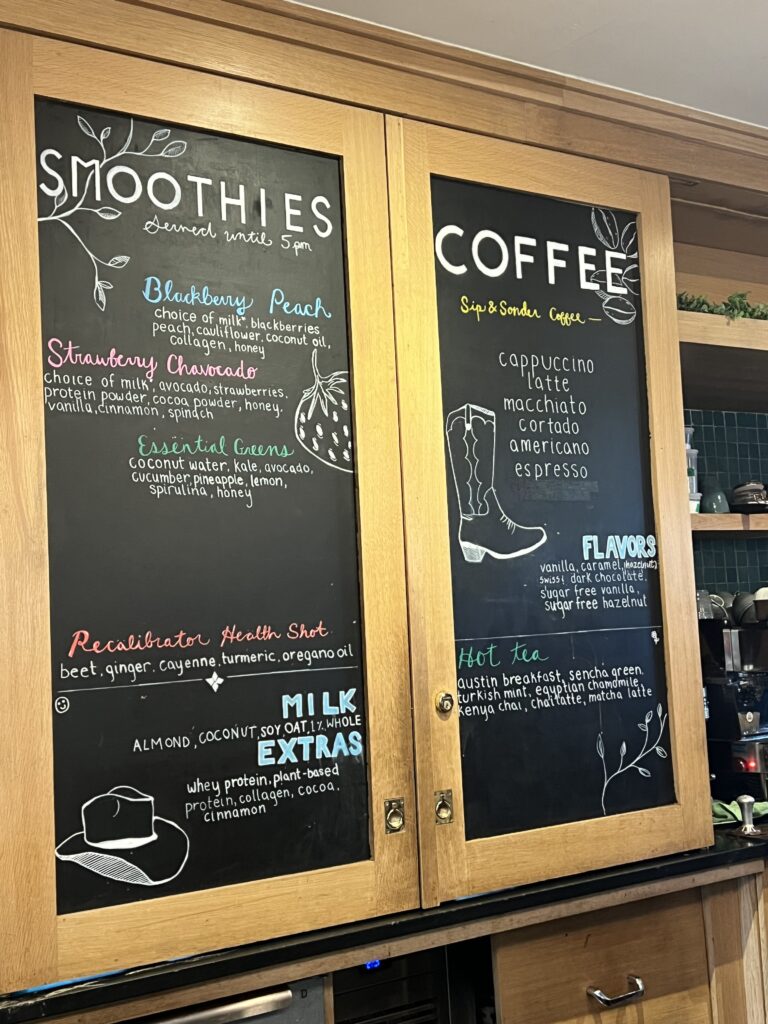 SMOOTHIES
Served until 5pm
Blackberry Peach
choice of milk*, blackberries
peach, cauliflower, coconut oil,
collagen, honey
Strawberry Chavocado
choice of milk*, avocado, strawberries,
protein powder, cocoa powder, honey,
vanilla, cinnamon, spinach
Essential Greens
coconut water, kale, avocado,
cucumber, pineapple, lemon,
spirulina, honey
Recalibrator Health Shot
beet, ginger, cayenne, turmeric, oregano oil
MILK
ALMOND, COCONUT, SOY, OAT, 1%, WHOLE
EXTRAS
whey protein, plant-based
protein, collagen, cocoa,
cinnamon
COFFEE
Sip & Sonder Coffee —
cappuccino
latte
macchiato
cortado
americano
espresso
FLAVORS
vanilla, caramel, (hazelnut)
swiss & dark chocolate,
sugar free vanilla,
sugar free hazelnut
Hot tea
austin breakfast, sencha green,
turkish mint, egyptian chamomile,
kenya chai, chai latte, matcha latte